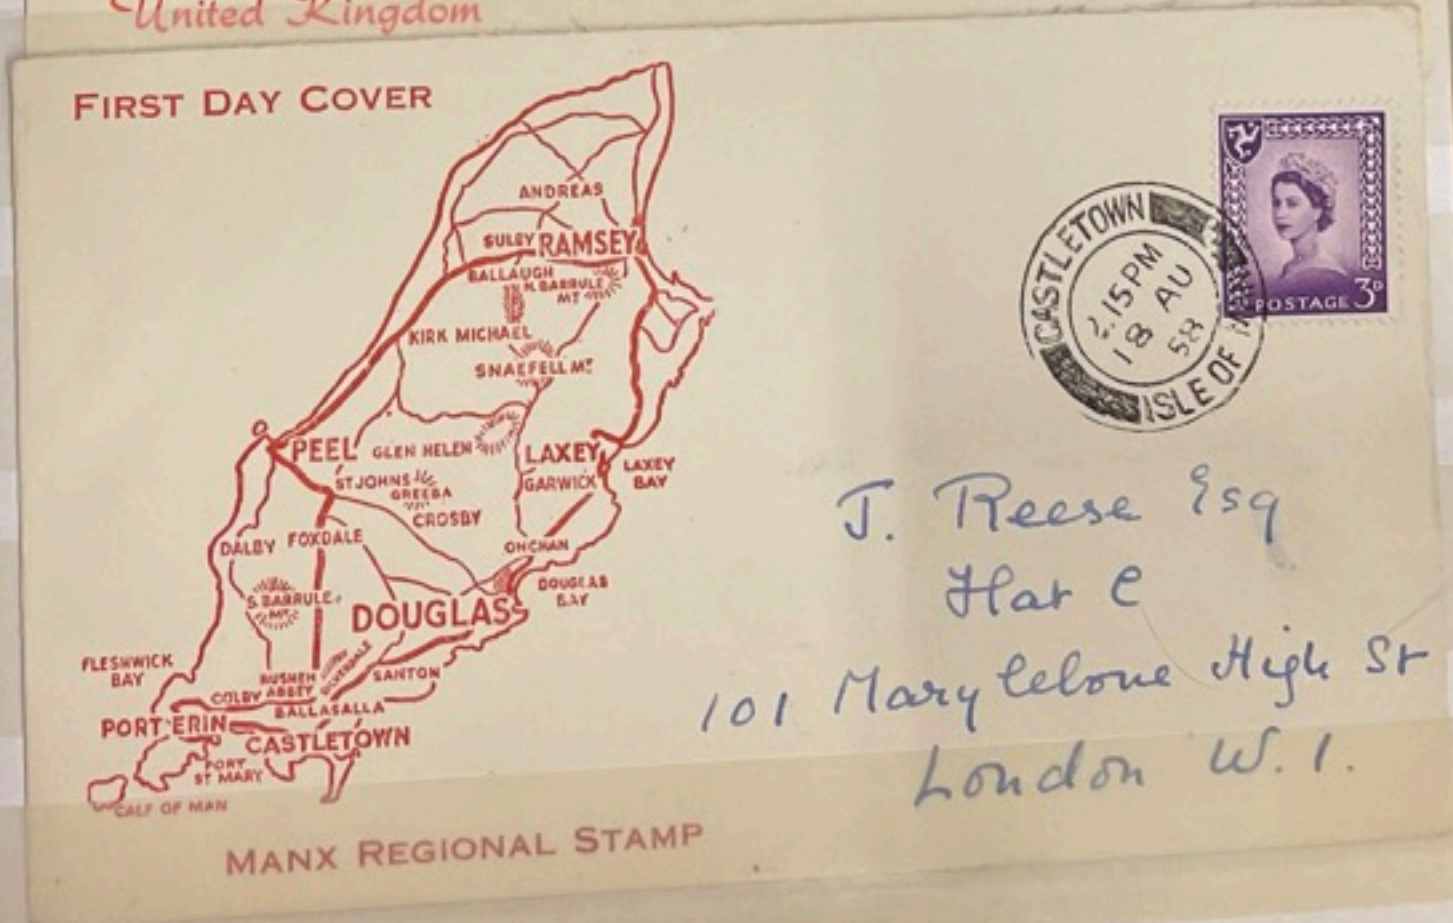 United Kingdom
FIRST DAY COVER
ANDREAS
SULBY RAMSEY
BALLAUGH
N. BARRULE
MT
KIRK MICHAEL
SNAEFELL MT
PEEL
GLEN HELEN
LAXEY
LAXEY
BAY
ST JOHNS
GARWICK
GREEBA
CROSBY
DALBY FOXDALE
ONCHAN
DOUGLAS
BAY
S. BARRULE
MT
DOUGLAS
FLESHWICK
BAY
RUSHEN
ABBEY
SILVERDALE
SANTON
COLBY
BALLASALLA
PORT ERIN
CASTLETOWN
PORT
ST MARY
CALF OF MAN
MANX REGIONAL STAMP
POSTAGE 3D
CASTLETOWN
2.15 PM
18 AU
58
ISLE OF MAN
J. Reese Esq
Flat C
101 Marylebone High St
London W. 1.